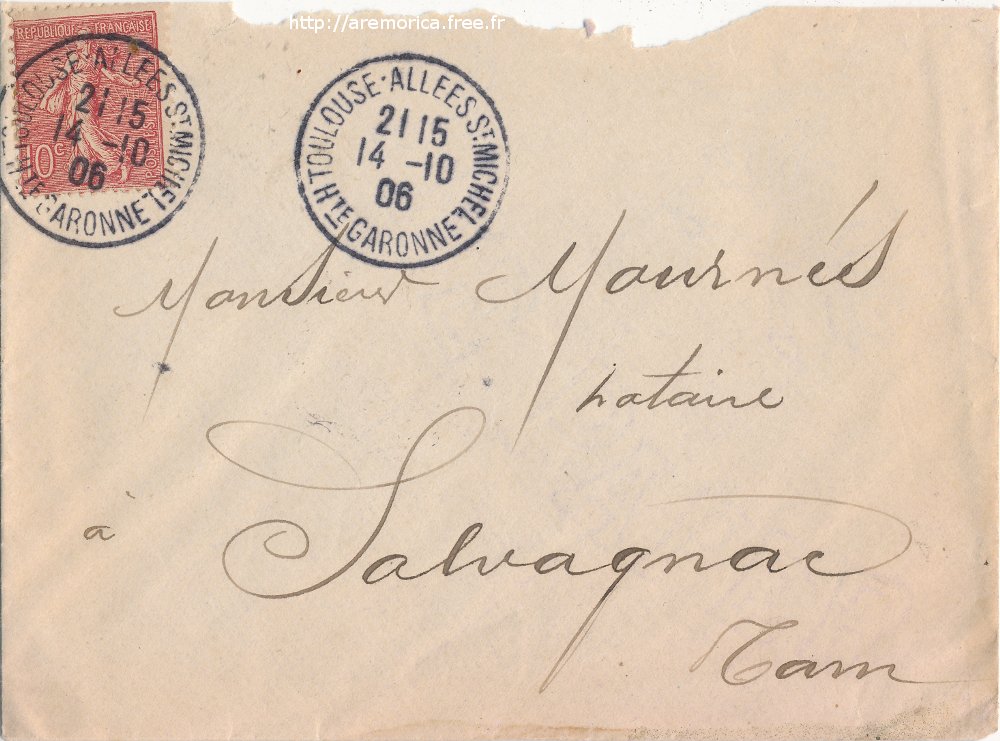 http://aremorica.free.fr
REPUBLIQUE FRANÇAISE
10c
POSTES
TOULOUSE-ALLEES ST MICHEL
21 15
14 -10
06
HTE GARONNE
TOULOUSE-ALLEES ST MICHEL
21 15
14 -10
06
HTE GARONNE
Monsieur Mournés
notaire
à Salvagnac
Tarn